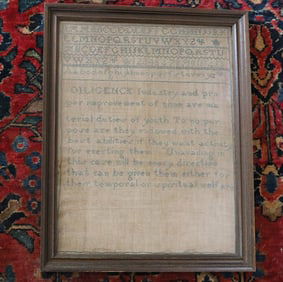 LMNOPQRSTUVWXYZ
ABCDEFGHIJKLMNOPQRSTU
VWXYZ
abcdefghijklmnopqrstuvwxyz
DILIGENCE Industry and pro
per improvement of time are ma
terial duties of youth To no pur
pose are they endowed with the
best abilities if they want activity
for exerting them Unavailing in
this case will be every direction
that can be given them either for
their temporal or spiritual welfare